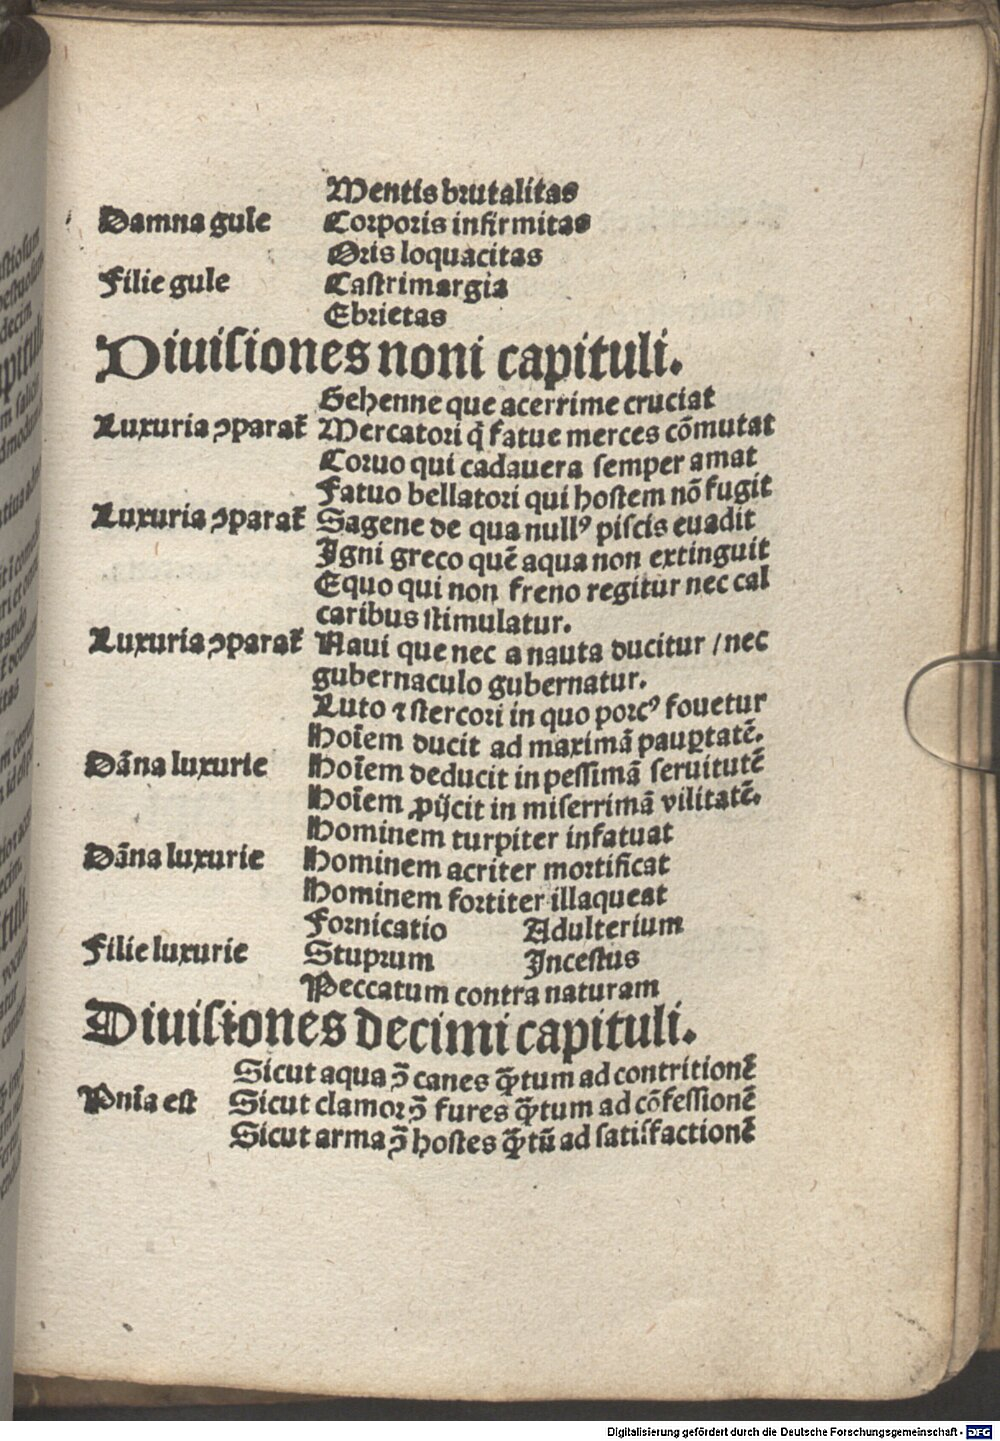 Mentis brutalitas
Damna gule Corporis infirmitas
Oris loquacitas
Filie gule Castrimargia
Ebrietas
Diuisiones noni capituli.
Gehenne que acerrime cruciat
Luxuria ɔparat̄ Mercatori q̄ fatue merces cōmutat
Coruo qui cadauera semper amat
Fatuo bellatori qui hostem nō fugit
Luxuria ɔparat̄ Sagene de qua nullꝰ piscis euadit
Igni greco quē aqua non extinguit
Equo qui non freno regitur nec cal
caribus stimulatur.
Luxuria ɔparat̄ Naui que nec a nauta ducitur / nec
gubernaculo gubernatur.
Luto ⁊ stercori in quo porcꝰ fouetur
Hoīem ducit ad maximā pauꝑtatē.
Dāna luxurie Hoīem deducit in pessimā seruitutē
Hoīem ꝓijcit in miserrimā vilitatē.
Hominem turpiter infatuat
Dāna luxurie Hominem acriter mortificat
Hominem fortiter illaqueat
Fornicatio Adulterium
Filie luxurie Stuprum Incestus
Peccatum contra naturam
Diuisiones decimi capituli.
Sicut aqua ɔ̄ canes q̄tum ad contritionē
Pnīa est Sicut clamor ɔ̄ fures q̄tum ad cōfessionē
Sicut arma ɔ̄ hostes q̄tū ad satisfactionē
Digitalisierung gefördert durch die Deutsche Forschungsgemeinschaft - DFG